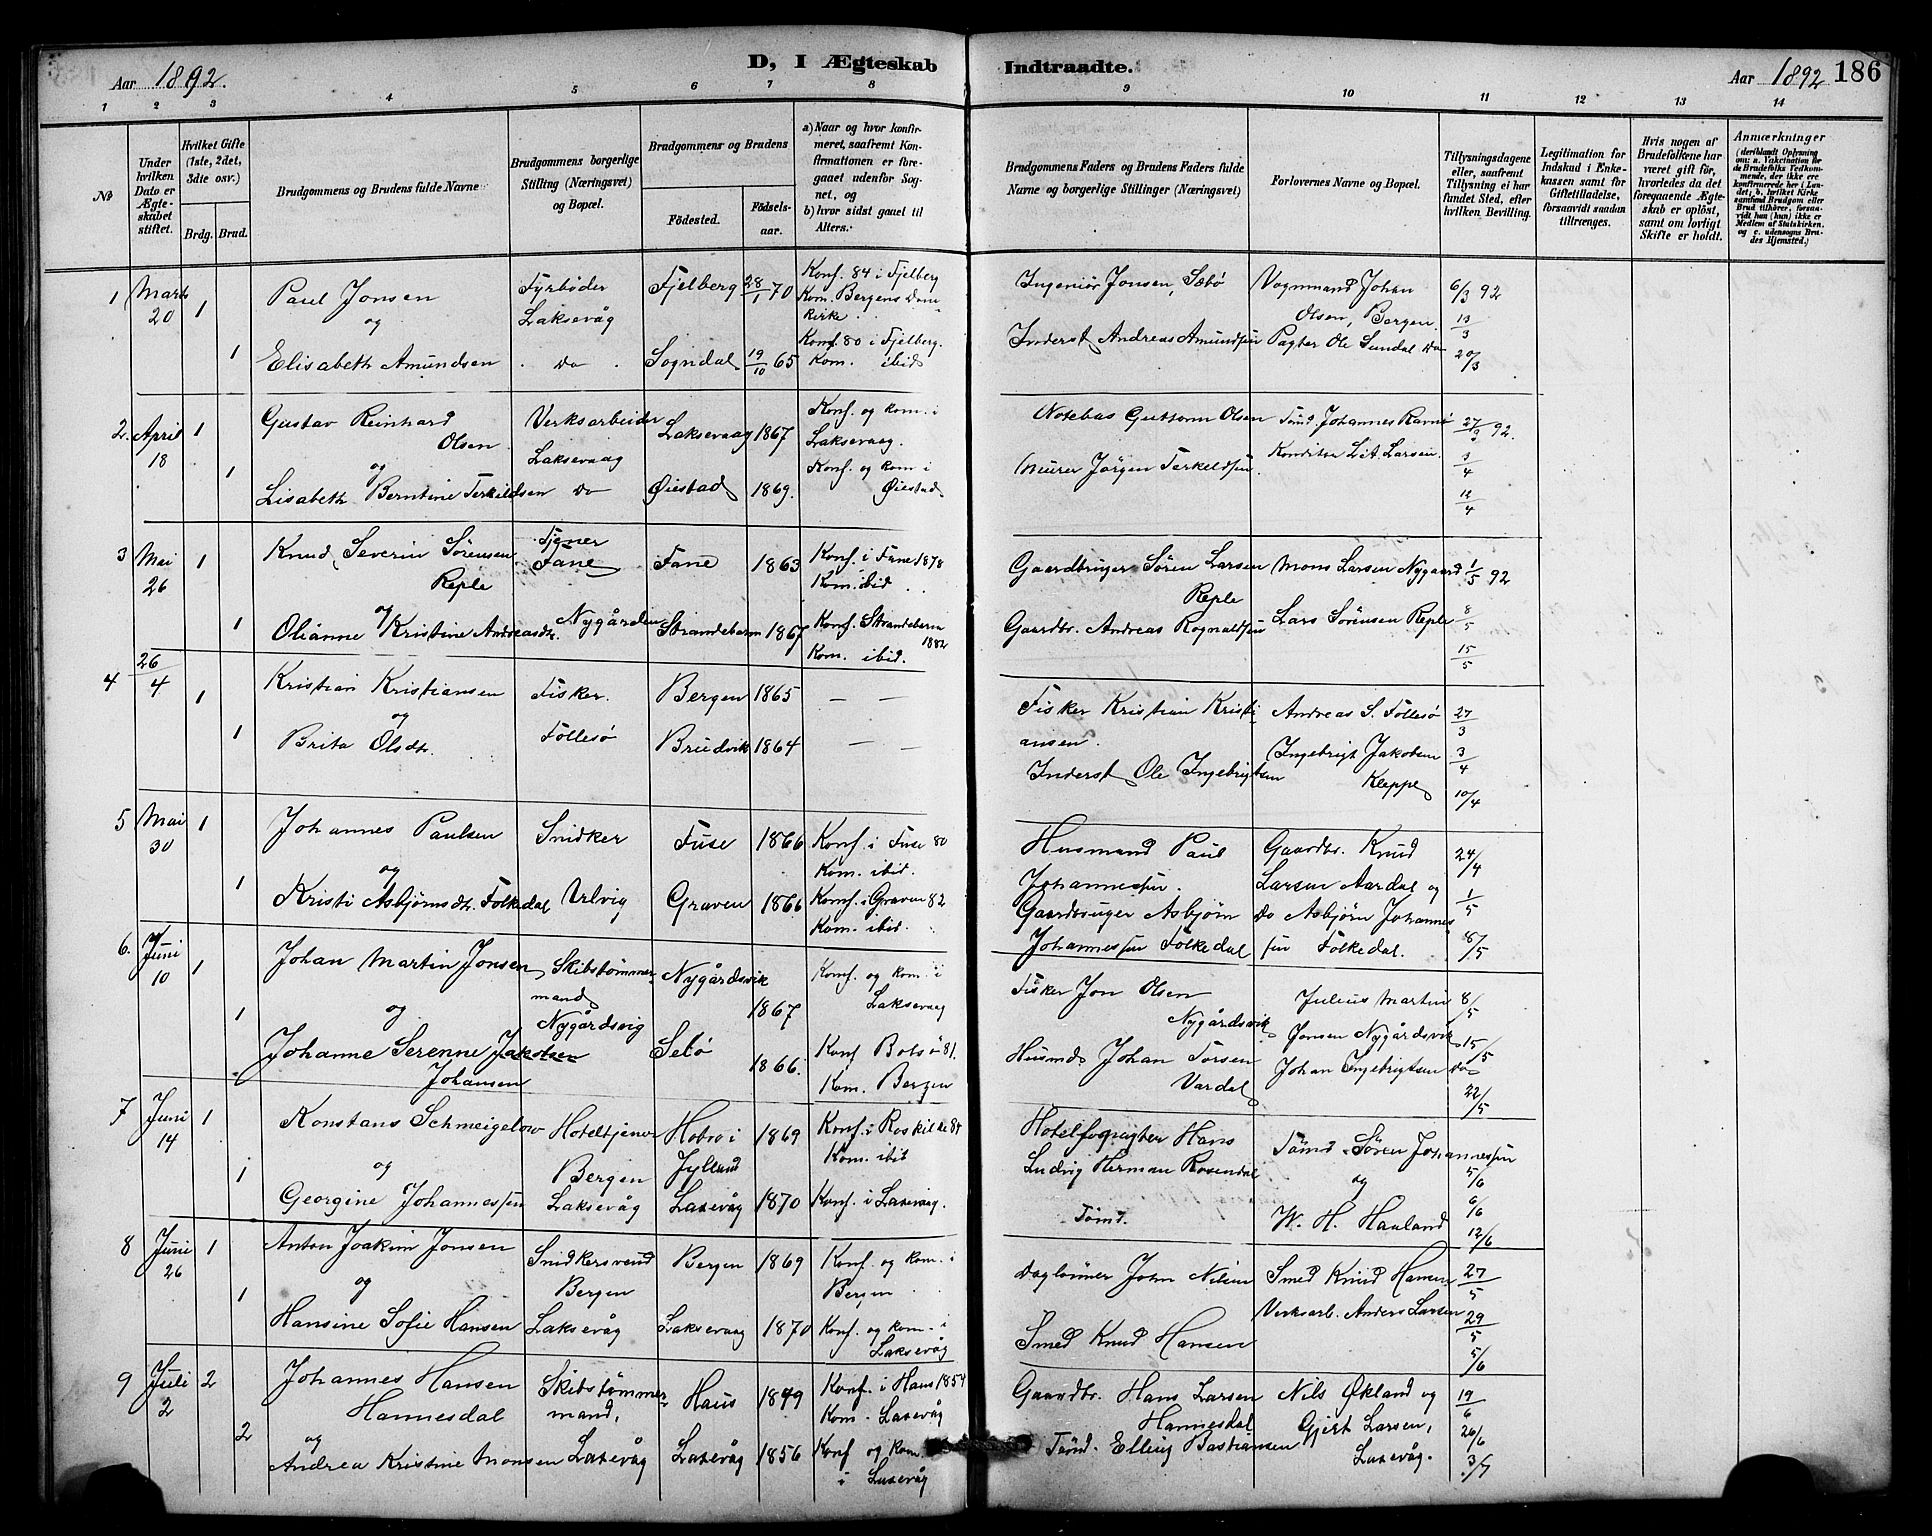 Aar 1892.
D, I Ægteskab Indtraadte.
Aar 1892 186
1 2 3 4 5 6 7 8 9 10 11 12 13 14
No
Under hvilken Dato er Ægteskabet stiftet.
Hvilket Gifte (1ste, 2det, 3dte osv.)
Brdg. Brud.
Brudgommens og Brudens fulde Navne
Brudgommens borgerlige Stilling (Næringsvei) og Bopæl.
Brudgommens og Brudens
Fødested. Fødselsaar.
a) Naar og hvor konfirmeret, saafremt Konfirmationen er foregaaet udenfor Sognet, og
b) hvor sidst gaaet til Alters.
Brudgommens Faders og Brudens Faders fulde Navne og borgerlige Stillinger (Næringsvei)
Forlovernes Navne og Bopæl.
Tillysningsdagene eller, saafremt Tillysning ei har fundet Sted, efter hvilken Bevilling.
Legitimation for Indskud i Enkekassen samt for Giftetilladelse, forsaavidt saadan tiltrænges.
Hvis nogen af Brudefolkene har været gift før, hvorledes da det foregaaende Ægteskab er opløst, samt om lovligt Skifte er holdt.
Anmærkninger (deriblandt Oplysning om: a. Vakcination for de Brudefolks Vedkommende, der ikke ere konfirmerede her i Landet; b. hvilket Kirkesamfund Brudgom eller Brud tilhører, forsaavidt han (hun) ikke er Medlem af Statskirken, og c. udensogns Brudes Hjemsted.)
1 Marts 20 1 Paul Jonsen Fyrbøder Laksevåg Fjelberg 28/1 70 Konf. 84 i Fjelberg Kom. Bergens Domkirke. Ingeniør Jonsen, Sæbø Vognmand Johan Olsen, Bergen. 6/3 92
og 13/3
1 Elisabeth Amundsen do Sogndal 19/10 65 Konf. 80 i Fjelberg. Kom. ibid Inderst Andreas Amundsen Pagter Ole Sundal do 20/3
2. April 18 1 Gustav Reinhard Olsen Verksarbeider Laksevaag Laksevaag 1867 Konf. og kom. i Laksevaag. Notebas Guttorm Olsen Tømd. Johannes Ravnø 27/3 92.
og 3/4
1 Lisabeth Berntine Terkildsen do Øiestad 1869. Konf. og kom i Øiestad Murer Jörgen Terkeldsen. Konditor Larsen. 12/4
3 Mai 26 1 Knud Severin Sørensen Reple Tjener Fane Fane 1863 Konf. i Fane 1878 Kom. ibid. Gaardbruger Sören Larsen Reple Mons Larsen Nygaard 1/5 92
og 8/5
1 Olianne Kristine Andreasdr. Nygården Strandebarm 1867 Konf. Strandebarm 1882 Kom. ibid. Gaardbr. Andreas Rognaldsen Lars Sörensen Reple 15/5
4 26/4 1 Kristian Kristiansen Fisker. Bergen 1865 — — Fisker Kristian Kristiansen. Andreas S. Follesø 27/3
og 3/4
1 Brita Olsdr. Follesø Brudvik 1864 — — Inderst Ole Ingebrigtsen Ingebrigt Jakobsen Kleppe 10/4
5 Mai 30 1 Johannes Paulsen Snidker Fuse 1866 Konf. i Fuse 80 Kom. ibid. Husmand Paul Johannessen. Gaardbr. Knud Larsen Aardal og 24/4
og 1/5
1 Kristi Asbjørnsdr. Folkedal Ulvig Graven 1866 Konf. i Graven 82 Kom. ibid. Gaardbruger Asbjørn Johannessen Folkedal do Asbjørn Johannessen Folkedal. 8/5
6. Juni 10 1 Johan Martin Jonsen Skibstømmermand Nygårdsvig Nygårdsvik 1867 Konf. og kom. i Laksevaag Fisker Jon Olsen Nygårdsvik Julius Martin Jonsen Nygårdsvik 8/5
og 15/5
1 Johanne Serenne Jakobsen Johansen Sebø 1866. Konf 81. Kom. Bergen Husmd Johan Torsen Vardal Johan Ingebrigtsen do 22/5
7 Juni 14 1 Konstans Schmeigelow Hoteltjener Bergen Hobro i Jylland 1869 Konf. i Roskilde 84 Kom. ibid Hotelforpagter Hans Ludvig Herman Rosendal Tømd. Søren Johannessen 5/6
og og 6/6
1 Georgine Johannessen Laksevåg Laxevåg 1870 Konf. i Laxevaag. Tømd. W. H. Hauland 12/6
8 Juni 26 1 Anton Joakim Jonsen Snidkersvend Bergen Bergen 1869 Konf. og kom. i Bergen Daglønner John Nilsen Smed Knud Hansen 27/5
og 29/5
1 Hansine Sofie Hansen Laksevåg Laksevaag 1870 Konf. og kom. i Laksevåg Smed Knud Hansen Verksarb. Anders Larsen 5/6
9 Juli 2 2 Johannes Hansen Hannesdal Skibstømmermand, Haus 1849 Konf. i Haus 1854 Kom. Laxevåg Gaardbr. Hans Larsen Hannesdal Nils Økland og 19/6
og 26/6
2 Andrea Kristine Monsen Laxevåg Laxevåg 1856 Konf og kom. i Laxevåg Tømd. Elling Bastiansen Gjert Larsen, Laxevåg. 3/7